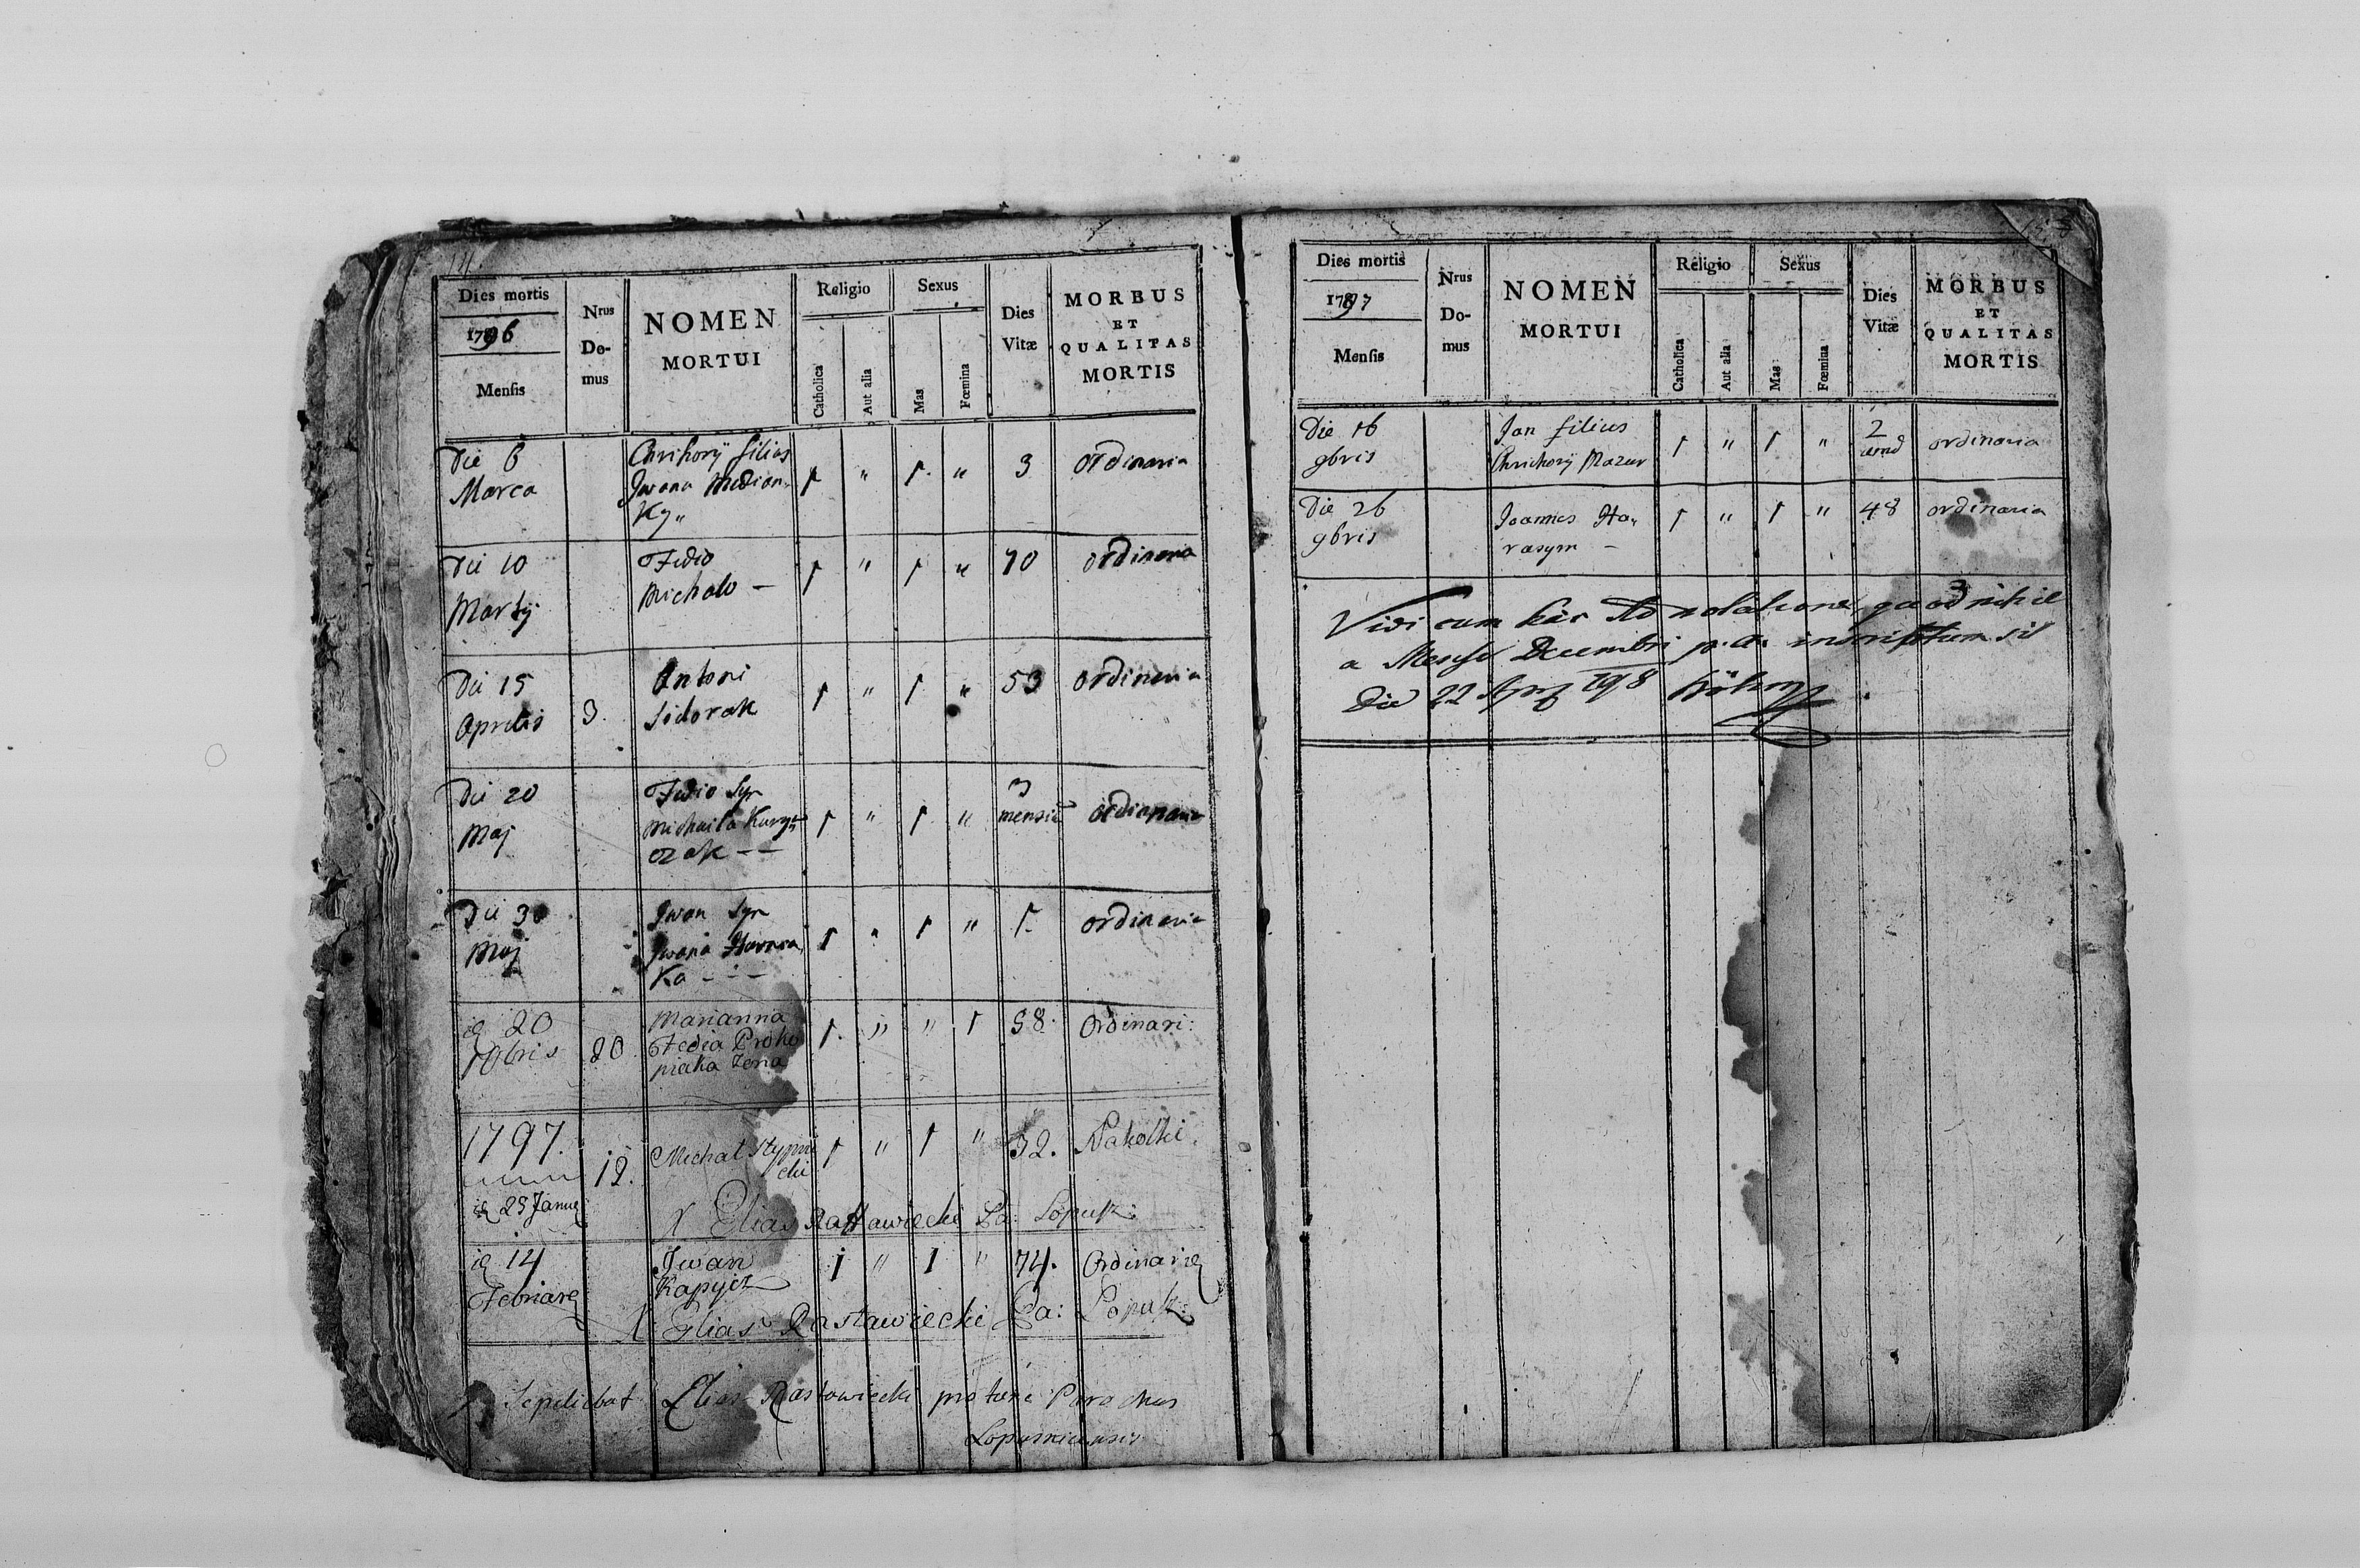 14.
Dies mortis
1796
Mensis
Nrus
Do-
mus
NOMEN
MORTUI
Religio
Catholica
Aut alia
Sexus
Mas
Fœmina
Dies
Vitæ
MORBUS
ET
QUALITAS
MORTIS
Die 6
Marca
Chrihorÿ filius
Jwana
Ky „
1 „ 1. „ 3 ordinaria
Die 10
Martÿ
Fedio
Michalo —
1 „ 1 „ 70 ordinaria
Die 15
Aprilis
3.
Antoni
Sidorak
1 „ 1 „ 53 ordinaria
Die 20
Maj
Fedio Syn
Michaila
ozak — —
1 „ 1 „ 3
mensiū
ordinaria
Die 30
Maj
Jwan Syn
Jwana
Ka - - -
1 „ 1 „ 1. ordinaria
20
10bris
80
Marianna
Fedia Proko
piaka żena
1. „ „ 1 58. Ordinari:
1797.
25 Janu
12.
Michal
cki
1 „ 1 „ 32.
X Elias Rastawiecki Pa: Lopusz:
14
Iwan
Kapyjcz
1 „ 1 „ 74. Ordinarie
X Elias Rastawiecki Pa: Lopuk:
Sepeliebat Elias Rastawiecki pro tunc Parochus
Lopusniensis
Dies mortis
1797
Mensis
Nrus
Do-
mus
NOMEN
MORTUI
Religio
Catholica
Aut alia
Sexus
Mas
Fœmina
Dies
Vitæ
MORBUS
ET
QUALITAS
MORTIS
Die 16
9bris
Jan filius
Chrichorÿ Mazur
1 „ 1 „ 2
ordinaria
Die 26
9bris
Joannes Ha„
rasym —
1 „ 1 „ 48 ordinaria
Vidi cum hac Adnotatione, quod nihil
a Mense Decembri p. a. inscriptum sit
Die 22 798